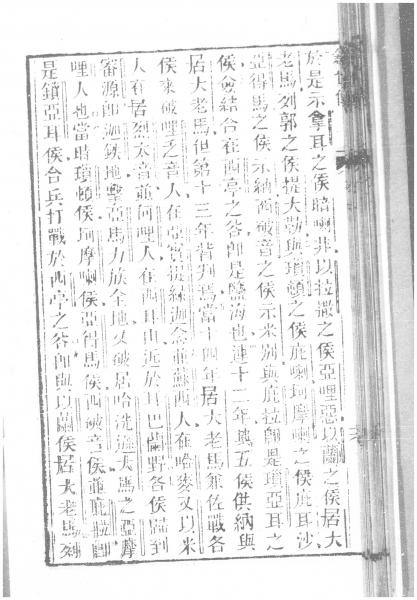 於是示拿耳之侯暗喇非以拉撒之侯亞哩惡以蘭之侯居大
老馬列郭之侯提大勒與瑣頓之侯庇喇坷摩喇之侯庇耳沙
亞得馬之侯示納西破音之侯示米別與庇拉即是瑣亞耳之
侯僉結合在西亭之谷即是鹽海也連十二年與五侯供納與
居大老馬但第十三年背判焉當十四年居大老馬兼佐戰各
侯來破哩乏音人在亞實提絲迦念並蘇西人在哈麥又以米
人在居列太音並何哩人在西耳山近於耳巴蘭野各侯歸到
審源郎迦鉄地擊亞馬力族全地又破居哈洗遜大馬之亞摩
哩人也當時瑣頓侯坷摩喇侯亞得馬侯西破音侯並庇拉即
是鎖亞耳侯合兵打戰於西亭之谷即與以蘭侯居大老馬列